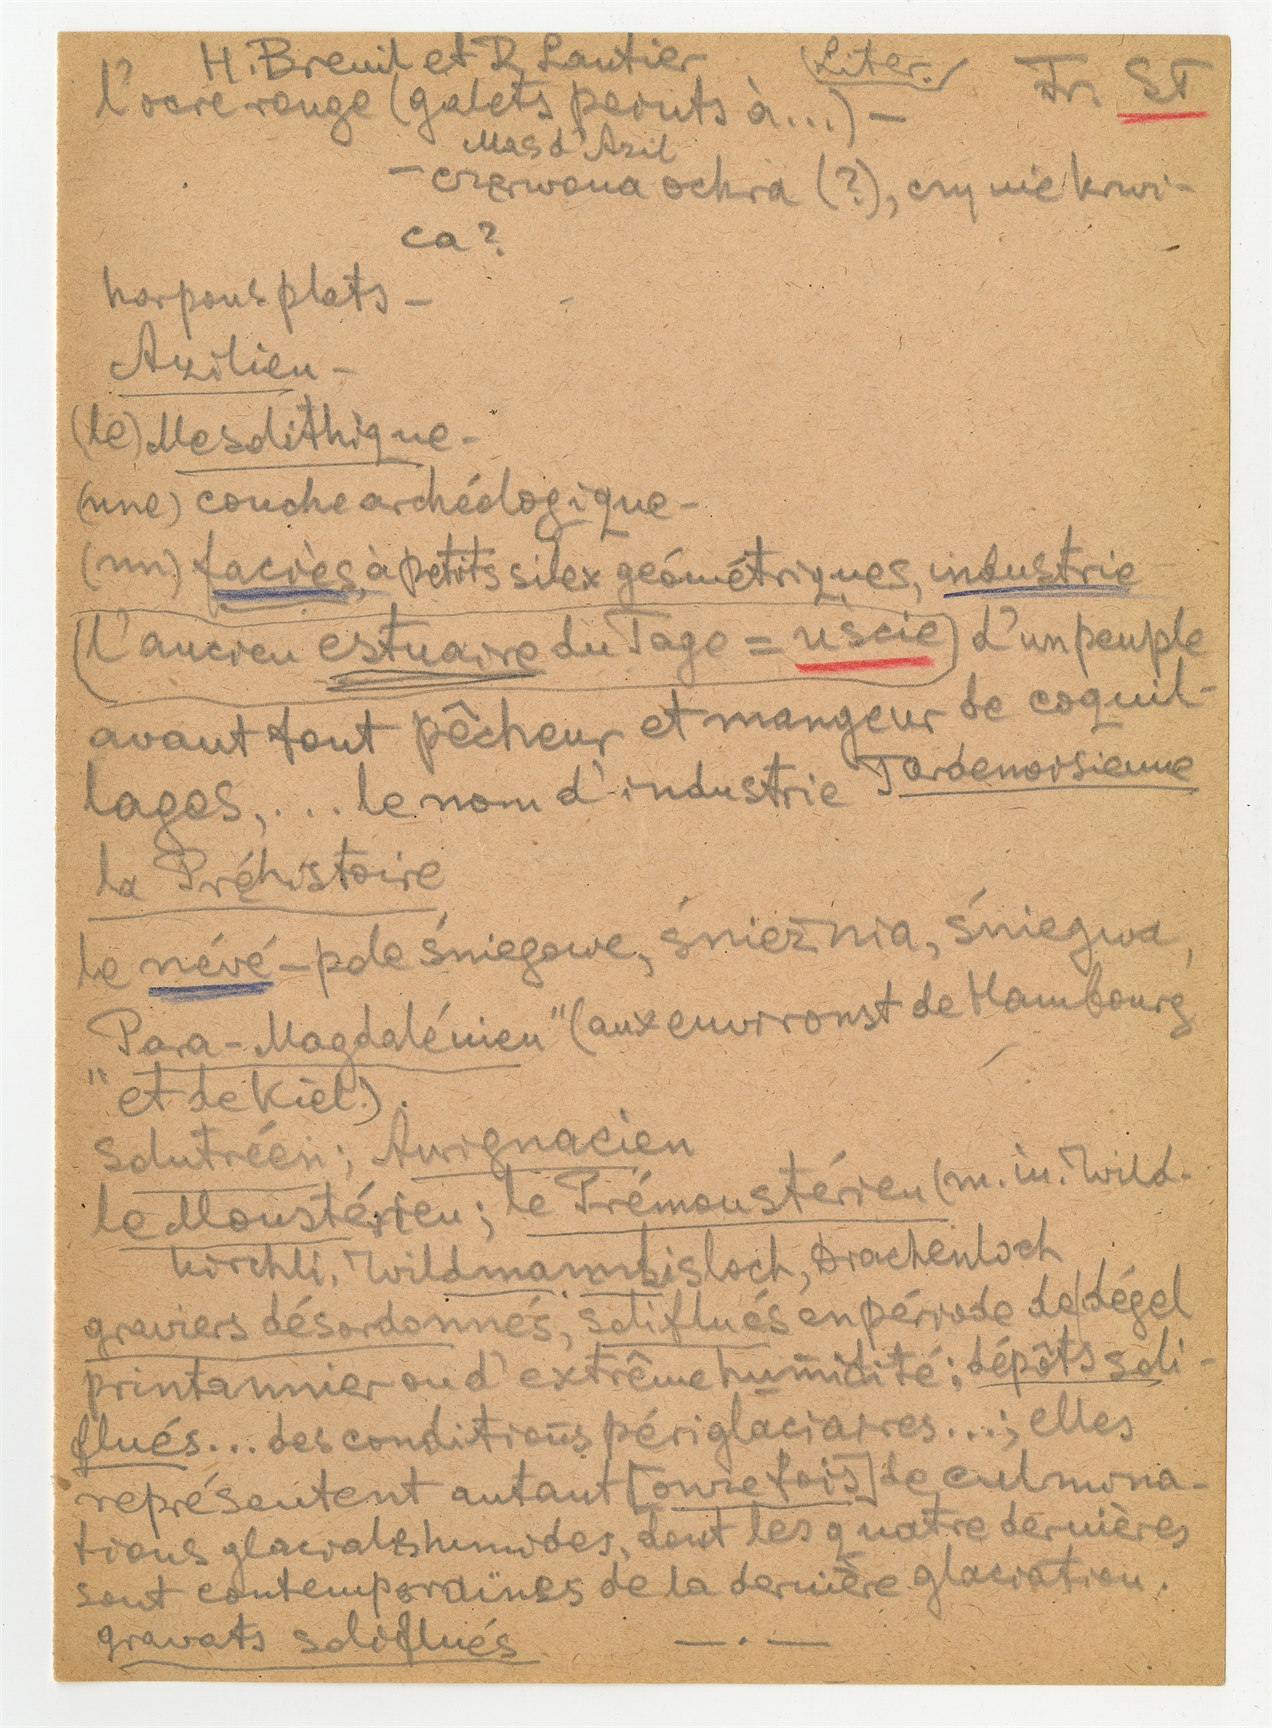 H. Breuil et R. Lantier (Liter.) Fr. ST
l'ocre rouge (galets peints à...) –
Mas d'Azil
– czerwona ochra (?), czy nie krwi-
ca?
harpons plats –
Azilien –
(le) Mesolithique –
(une) couche archéologique –
(un) faciès, à petits silex géométriques, industrie
(l'ancien estuaire du Tage = uście) d'un peuple
avant tout pêcheur et mangeur de coquil-
lages, ... le nom d'industrie Tardenoisienne
la Préhistoire
le névé – pole śniegowe, śnieżnia, śniegwa,
Para-Magdalénien" (aux environst de Hambourg
" et de Kiel).
Solutréen; Aurignacien
le Moustérien; le Prémoustérien (m. in. Wild-
kirchli, Wildmannlisloch, Drachenloch
graviers désordonnés, soliflués en période de dégel
printannier ou d'extrême humidité; dépôts soli-
flués... des conditions périglaciaires...; elles
représentent autant [onze fois] de culmina-
tions glaciales humides, dont les quatre dernières
sont contemporaines de la dernière glaciation.
gravats soliflués — . —